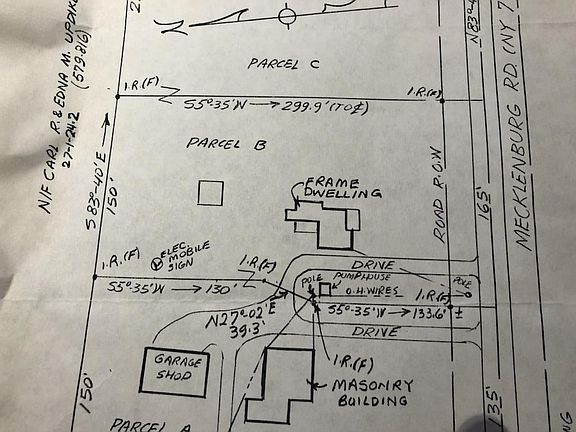 PARCEL C
I.R.(F)
I.R.(F)
S5°-35'W → 299.9' (TO ℄)
N/F CARL R. & EDNA M. UPDIKE
27-1-24.2 (579.8(6)
S83°-40'E
150'
PARCEL B
FRAME
DWELLING
ROAD R.O.W
165'
MECKLENBURG RD. (NY 7
N83°-4
I.R.(F)
ELEC.
MOBILE
SIGN
I.R.(F)
S5°-35'W → 130'
DRIVE
POLE
PUMPHOUSE
O.H. WIRES
I.R.(F)
POLE
S5°-35'W → 133.6' ±
N27°-02'E
39.3'
DRIVE
I.R.(F)
GARAGE
SHOP
MASONRY
BUILDING
150'
135'
PARCEL A